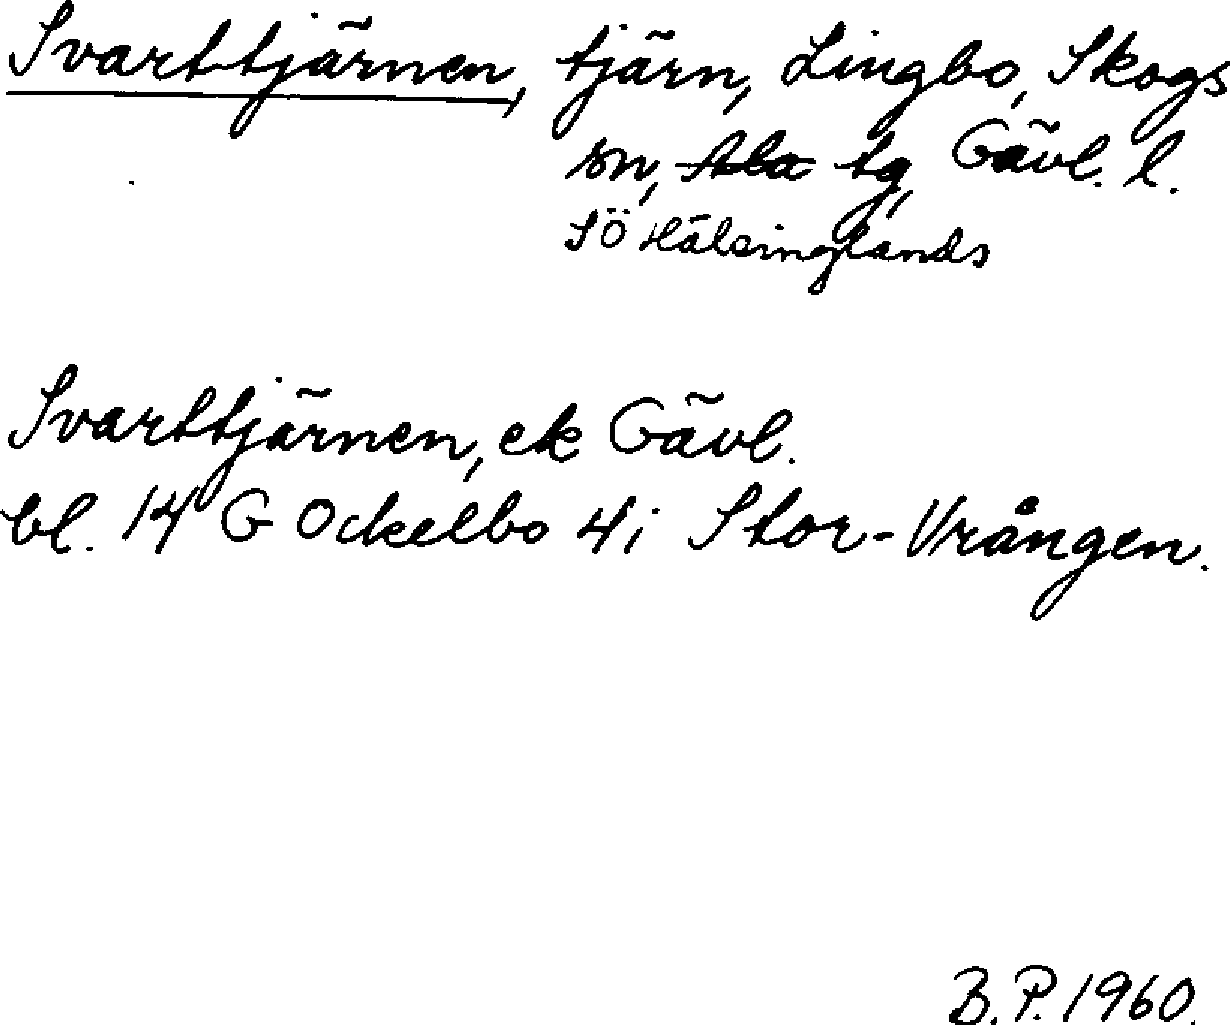 Svarttjärnen, tjärn, Lingbo, Skogs
sn, Ala tg, Gävl. l.
SÖ Hälsinglands
Svarttjärnen, ek Gävl.
bl. 14 G Ockelbo 4i Stor-Vrången.
B.P. 1960.